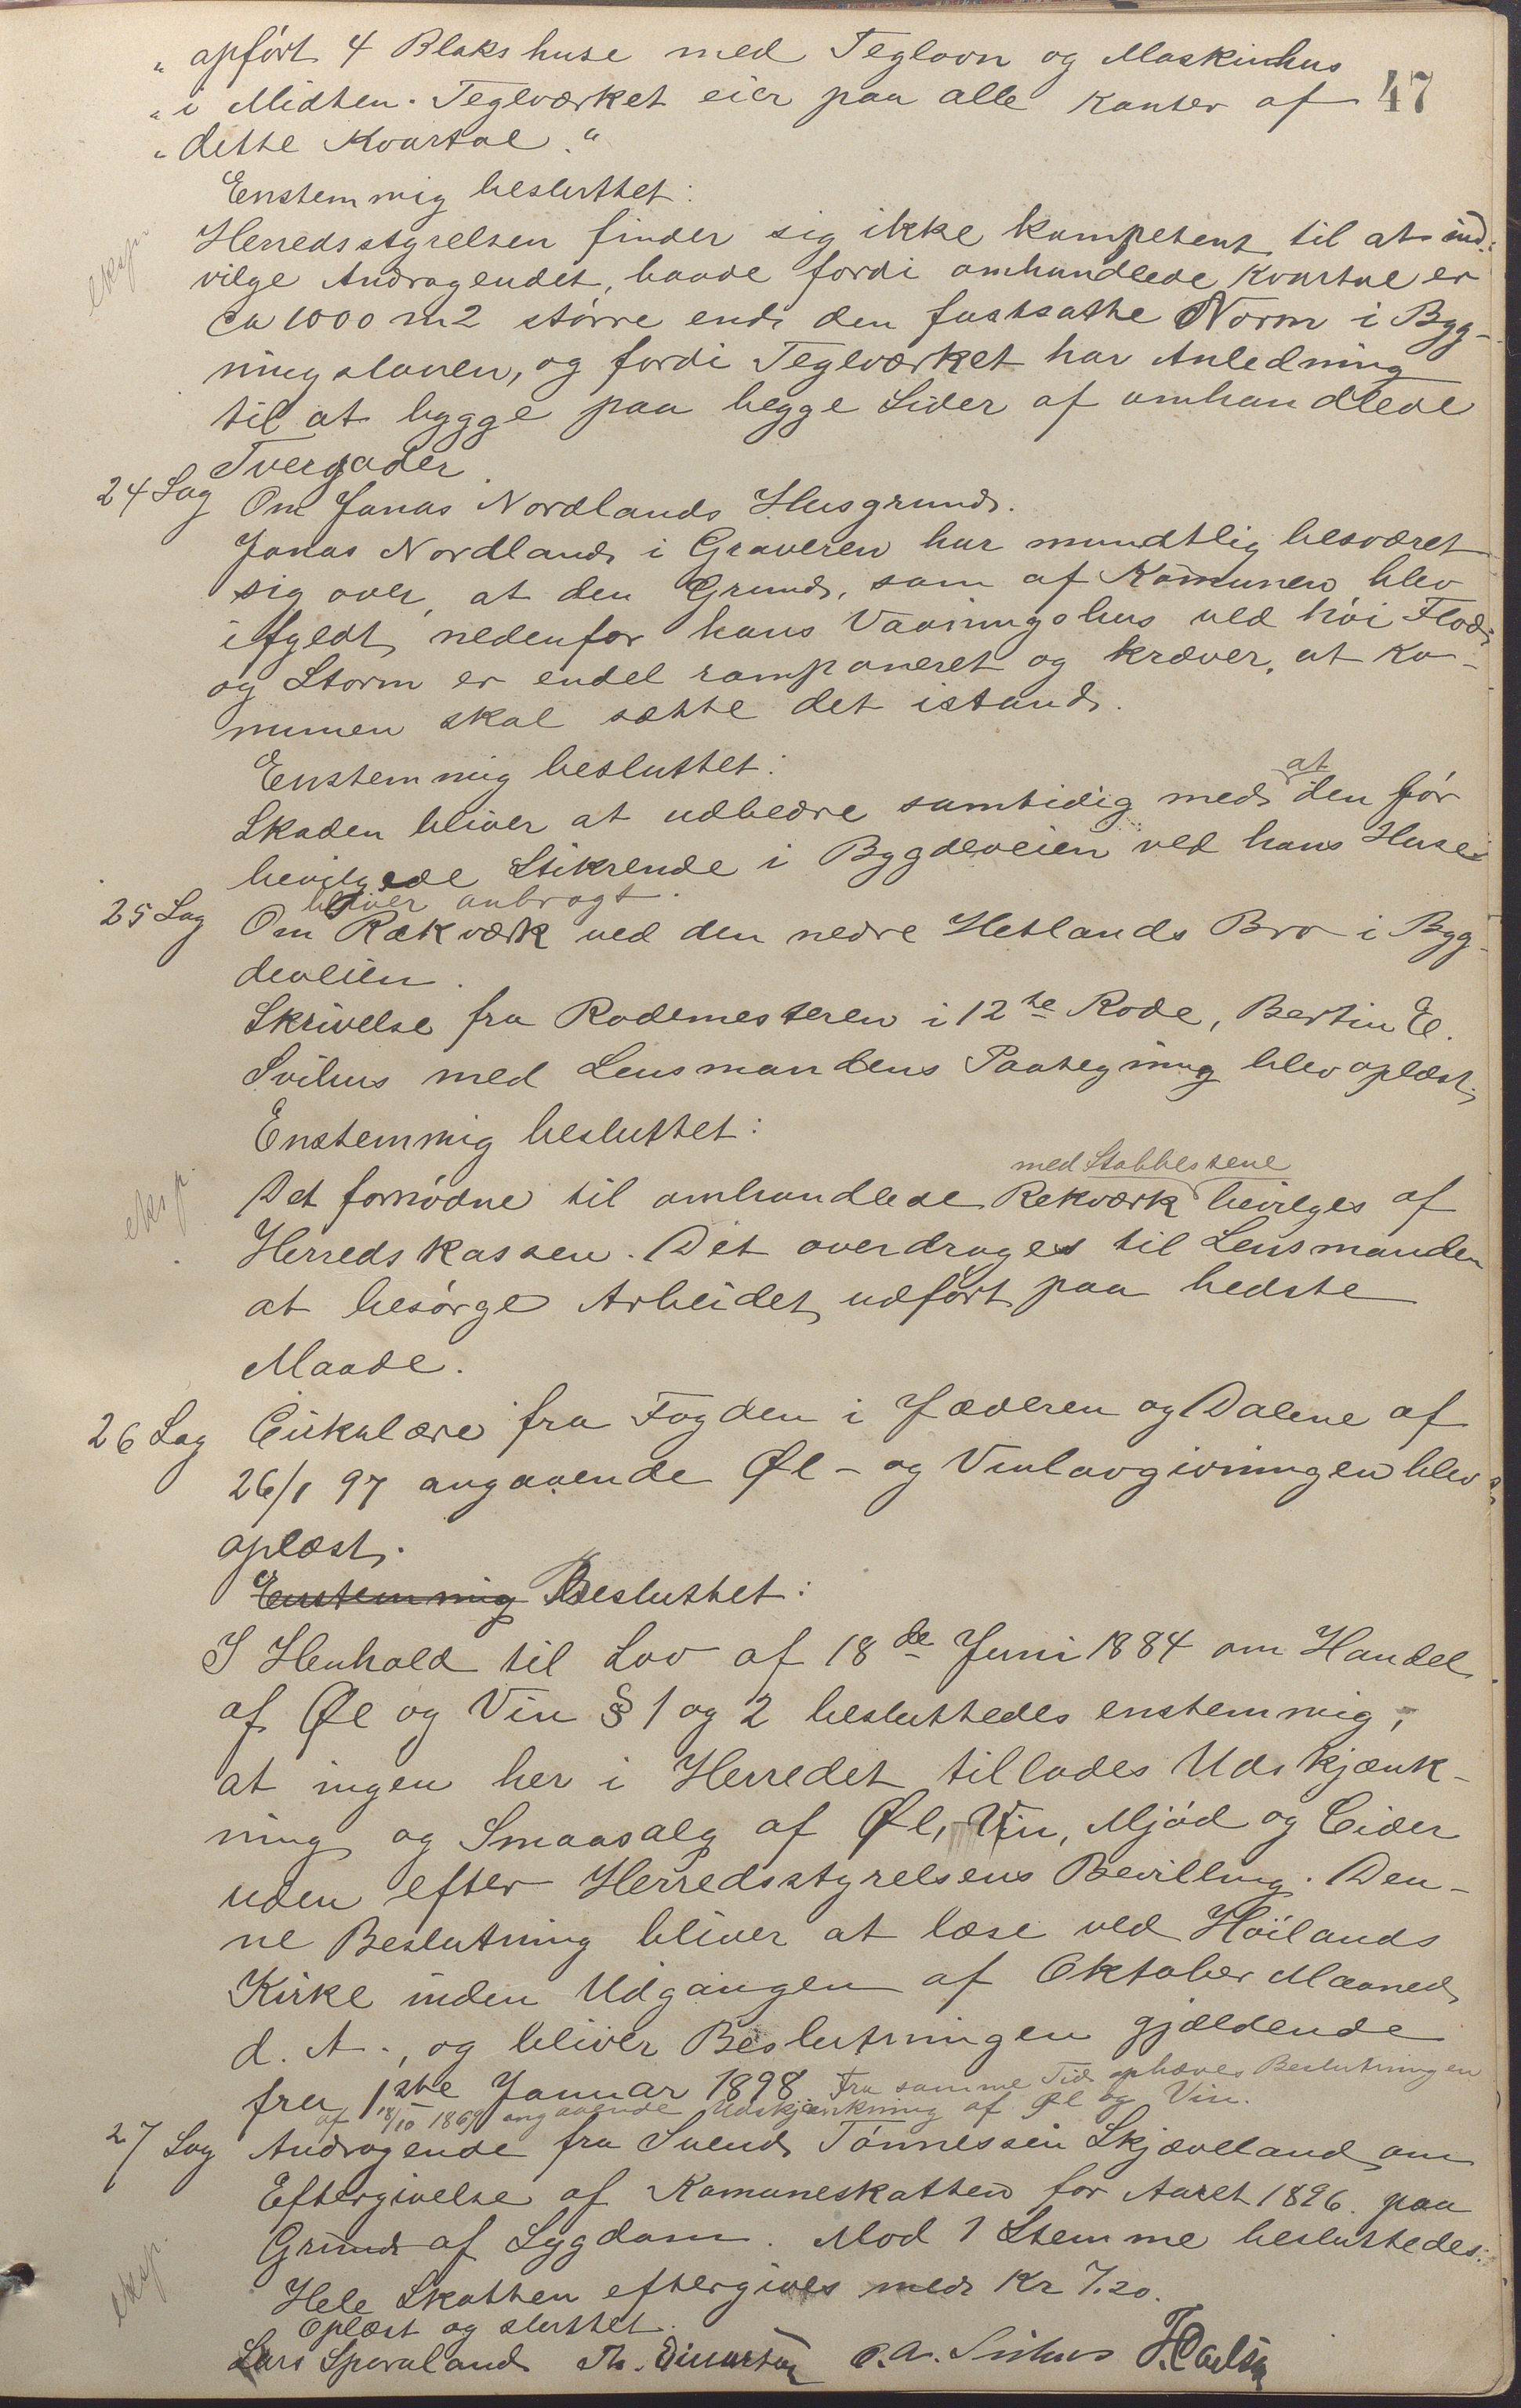 47
„ opført 4 Blokshuse med Teglovn og Maskinhus
„ i Midten. Teglværket eier paa alle Kanter af
„ dette Kvartal."
Enstemmig besluttet:
eksp.
Herredsstyrelsen finder sig ikke kompetent til at ind-
vilge Andragendet, baade fordi omhandlede Kvartal er
Ca 1000 m2 større end den fastsatte Norm i Byg-
ningsloven, og fordi Teglværket har Anledning
til at bygge paa begge Sider af omhandlede
Tvergader
24 Sag Om Jonas Nordlands Husgrund.
Jonas Nordland i Graveren har mundtlig besværet
sig over, at den Grund, som af Komunen blev
ifyldt nedenfor hans Vaaningshus ved høi Flod
og Storm er endel ramponeret og kræver, at Ko-
munen skal sætte det istand.
Enstemmig besluttet:
Skaden bliver at udbedre samtidig med at den før
bevilgede Stikrende i Bygdeveien ved hans Huse
bliver anbragt.
25 Sag Om Rækværk ved den nedre Hetlands Bro i Byg-
deveien.
Skrivelse fra Rodemesteren i 12te Rode, Bertin E.
Svihus med Lensmandens Paategning blev oplæst.
Enstemmig besluttet:
eksp.
Det fornødne til omhandlede Rekværk med Stabbestene bevilges af
Herredskassen. Det overdrages til Lensmanden
at besørge Arbeidet udført paa bedste
Maade.
26 Sag Cirkulære fra Fogden i Jæderen og Dalene af
26/1 97 angaaende Øl- og Vinlovgivningen blev
oplæst.
Enstemmig Besluttet:
I Henhold til Lov af 18de Juni 1884 om Handel
af Øl og Vin § 1 og 2 besluttedes enstemmig,
at ingen her i Herredet tillades Udskjænk-
ning og Smaasalg af Øl, Vin, Mjød og Cider
uden efter Herredsstyrelsens Bevilling. Den-
ne Beslutning bliver at læse ved Høilands
Kirke inden Udgangen af Oktober Maaned
d. A., og bliver Beslutningen gjældende
fra 1ste Januar 1898. Fra samme Tid ophæves Beslutningen
af 18/10 1869 angaaende Udskjænkning af Øl og Vin.
27 Sag Andragende fra Svend Tønnessen Skjæveland om
Eftergivelse af Komuneskatten for Aaret 1896 paa
Grund af Sygdom. Mod 1 Stemme besluttedes:
eksp.
Hele Skatten eftergives med Kr 7.20.
Oplæst og sluttet.
Lars Sporaland Th. O.A. Svihus